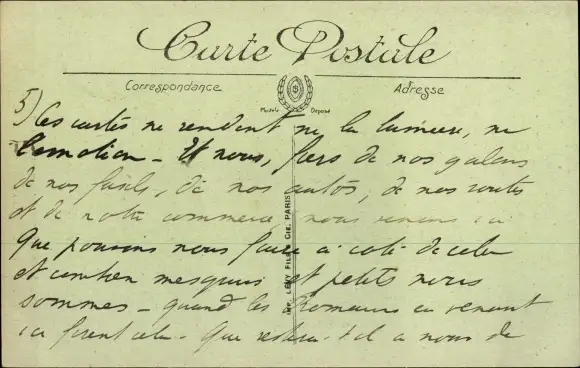 Carte Postale
Correspondance
Adresse
Modèle Déposé
5) Ces cartes ne rendent ni la lumière, ni
l'émotion - Et nous, fiers de nos galons
de nos fusils, de nos autos, de nos routes
et de notre commerce nous venons ici
Que pouvons nous faire à côté de cela
et combien mesquins et petits nous
sommes - quand les Romains en venant
ici firent cela. Que restera-t-il a nous de
IMP. LÉVY FILS & CIE. PARIS